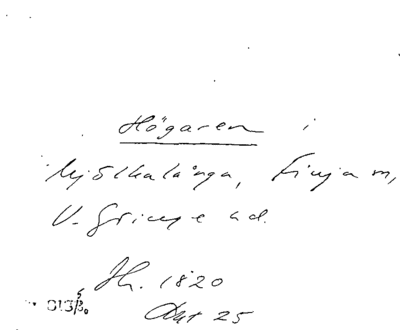 Högaren i
Mjölkalånga, Finja m,
V. Göinge hd.
Jh. 1820
Avt 25